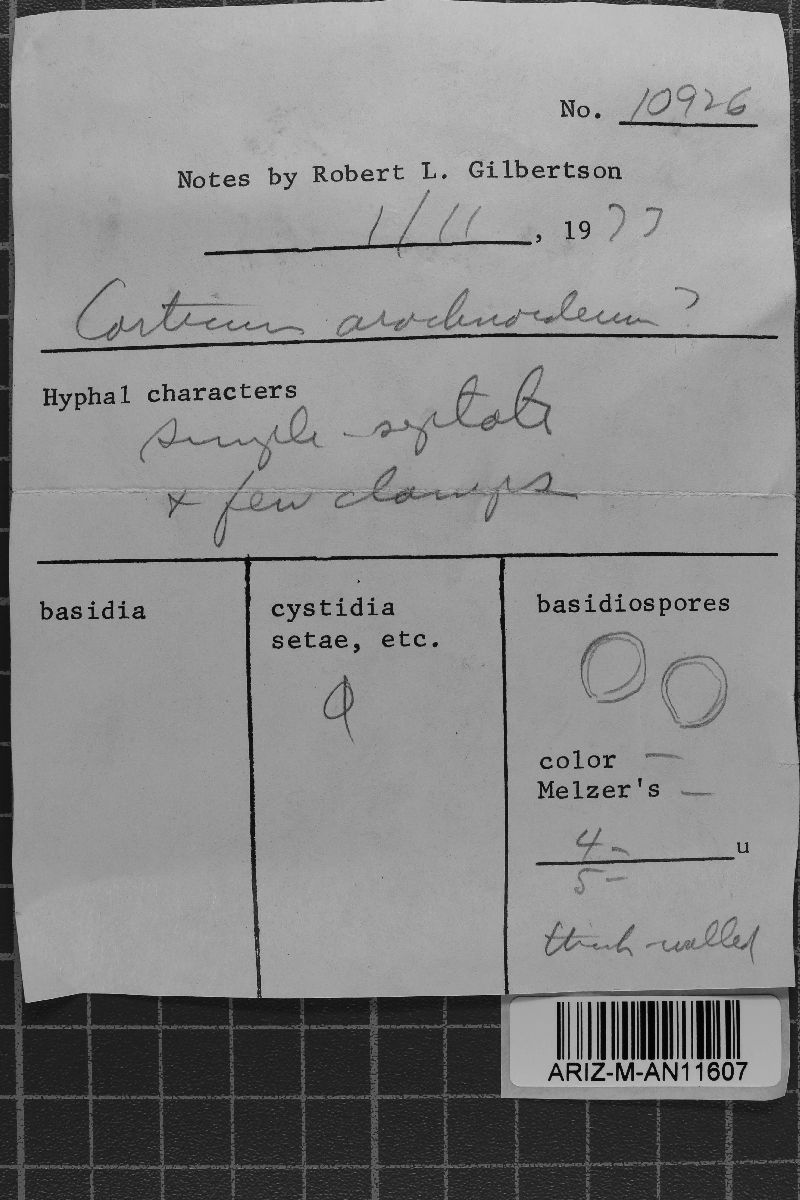 No. 10926
Notes by Robert L. Gilbertson
1/11, 1977
Corticium arachnoideum?
Hyphal characters
simple-septate
+ few clamps
basidia
cystidia
setae, etc.
basidiospores
color —
Melzer's —
4- u
5-
thick-walled
ARIZ-M-AN11607